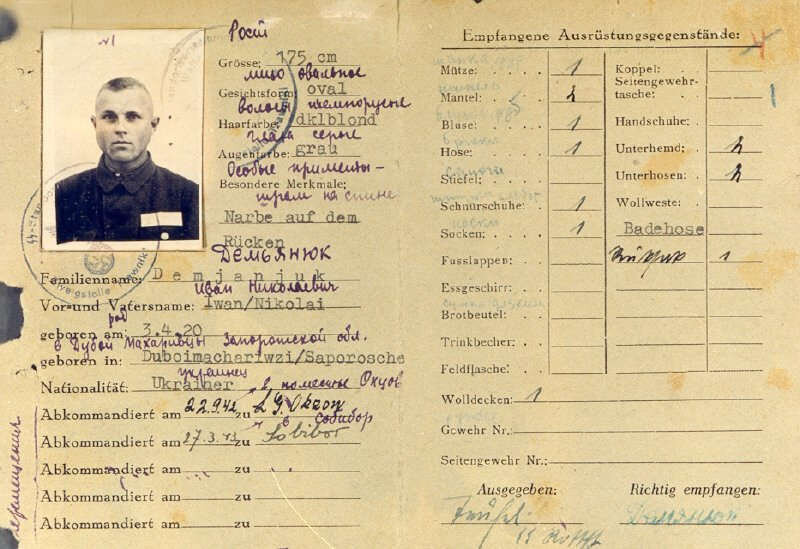 №1
Рост
Grösse: 175 cm
лицо овальное
Gesichtsform: oval
волосы темнорусые
Haarfarbe: dklblond
глаза серые
Augenfarbe: grau
Особые приметы -
Besondere Merkmale:
шрам на спине
Narbe auf dem
Rücken
Демьянюк
Familienname: Demjanjuk
Иван Николаевич
Vor- und Vatersname: Iwan/Nikolai
род
geboren am: 3.4.20
в Дубой Махаривцы Запорожской обл.
geboren in: Duboimachariwzi/Saporosche
украинец
Nationalität: Ukrainer
в поместье Окцов
Abkommandiert am 22.9.42 zu L.G. Okzow
в Собибор
Abkommandiert am 27.3.43 zu Sobibor
Abkommandiert am zu
Abkommandiert am zu
Abkommandiert am zu
Empfangene Ausrüstungsgegenstände: 4
Mütze: 1
Mantel: 2
Bluse: 1
Hose: 1
Stiefel:
Schnürschuhe: 1
Socken: 1
Fusslappen:
Essgeschirr:
Brotbeutel:
Trinkbecher:
Feldflasche:
Wolldecken: 1
Gewehr Nr.:
Seitengewehr Nr.:
Koppel:
Seitengewehr-
tasche: 1
Handschuhe:
Unterhemd: 2
Unterhosen: 2
Wollweste:
Badehose
1
Ausgegeben: Richtig empfangen: